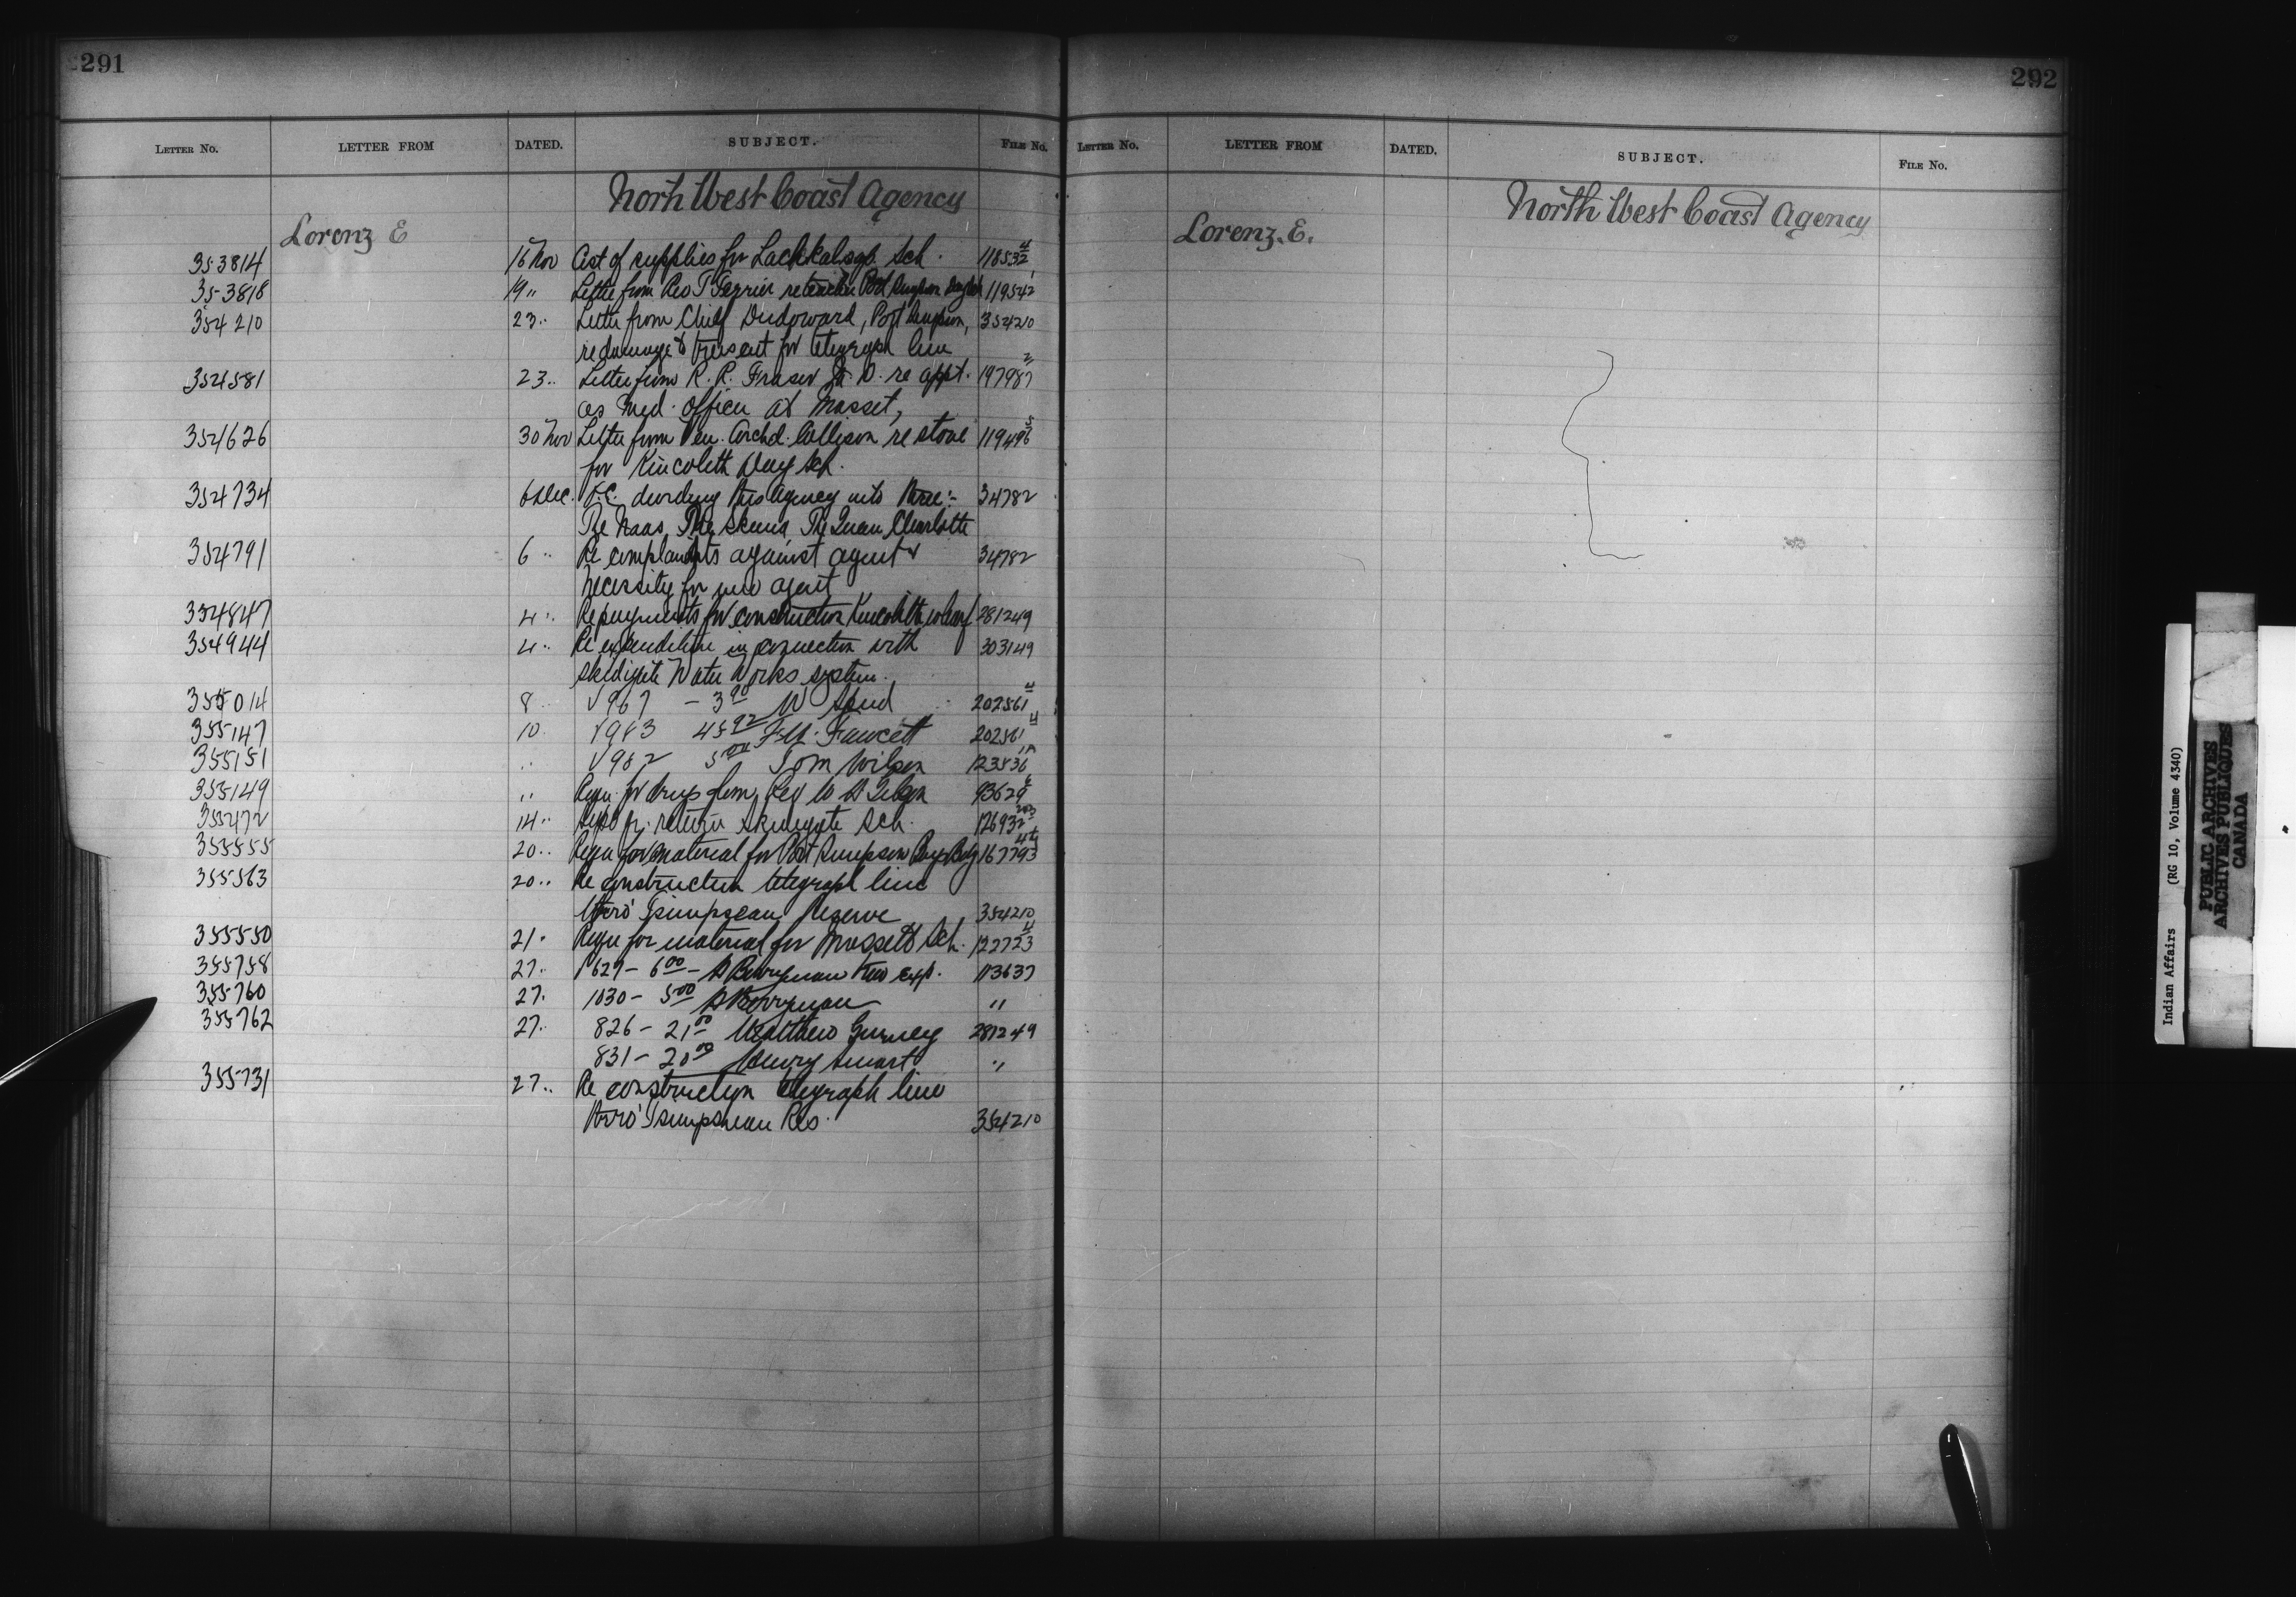 291
LETTER NO. LETTER FROM DATED. SUBJECT. FILE No.
North West Coast Agency
Lorenz E
353814 16 Nov of supplies for Sch. 118532 4
353818 19 " Letter from Rev T Ferrier re teacher Port 119542 1
354210 23 " Letter from Chief Dudoward, Port Simpson, 354210
re damage & present for telegraph line
354581 23 " Letter from R. R. Fraser M. D. re appt. 197987 2
as Med. officer at Masset,
354626 30 Nov Letter from Ven. Archd. Collison re stove 119496 5
for Kincolith Day Sch.
354734 6 Dec. dividing this agency into three:- 34782
The Naas, The Skeena, The Queen Charlotte
354791 6 " Re complaints against agent & 34782
necessity for new agent
354847 4 " Re payments for construction Kincolith wharf 281249
354944 4 " Re expenditure in connection with 303149
Skidigate Water Works system.
355014 8 √967 - 3 90 W 202561 4
355147 10 √983 45 92 Fawcett 202561 4
355151 " √982 5 00 Tom Wilson 123836
355149 " Requ. for drugs from Rev 93629
355472 14 " return Skidegate Sch. 126932
355555 20 " Requ for material for Port Simpson Boys Bdg 167793
355563 20 " Re construction telegraph line
thro' Tsimpsean Reserve 354210
355550 21 " Requ for material for Massett Sch. 122723 4
355758 27 " 1629 - 6 00 - A Berryman exp. 113637
355760 27 " 1030 - 5 00 A Berryman "
355762 27 " 826 - 21 00 Matthew Gurney 281249
831 - 20 00 Henry Smart "
355731 27 " Re construction telegraph line
thro' Tsimpsean Res. 354210
292
LETTER No. LETTER FROM DATED. SUBJECT. FILE No.
North West Coast Agency
Lorenz. E.
Indian Affairs (RG 10, Volume 4340)
PUBLIC ARCHIVES
ARCHIVES PUBLIQUES
CANADA